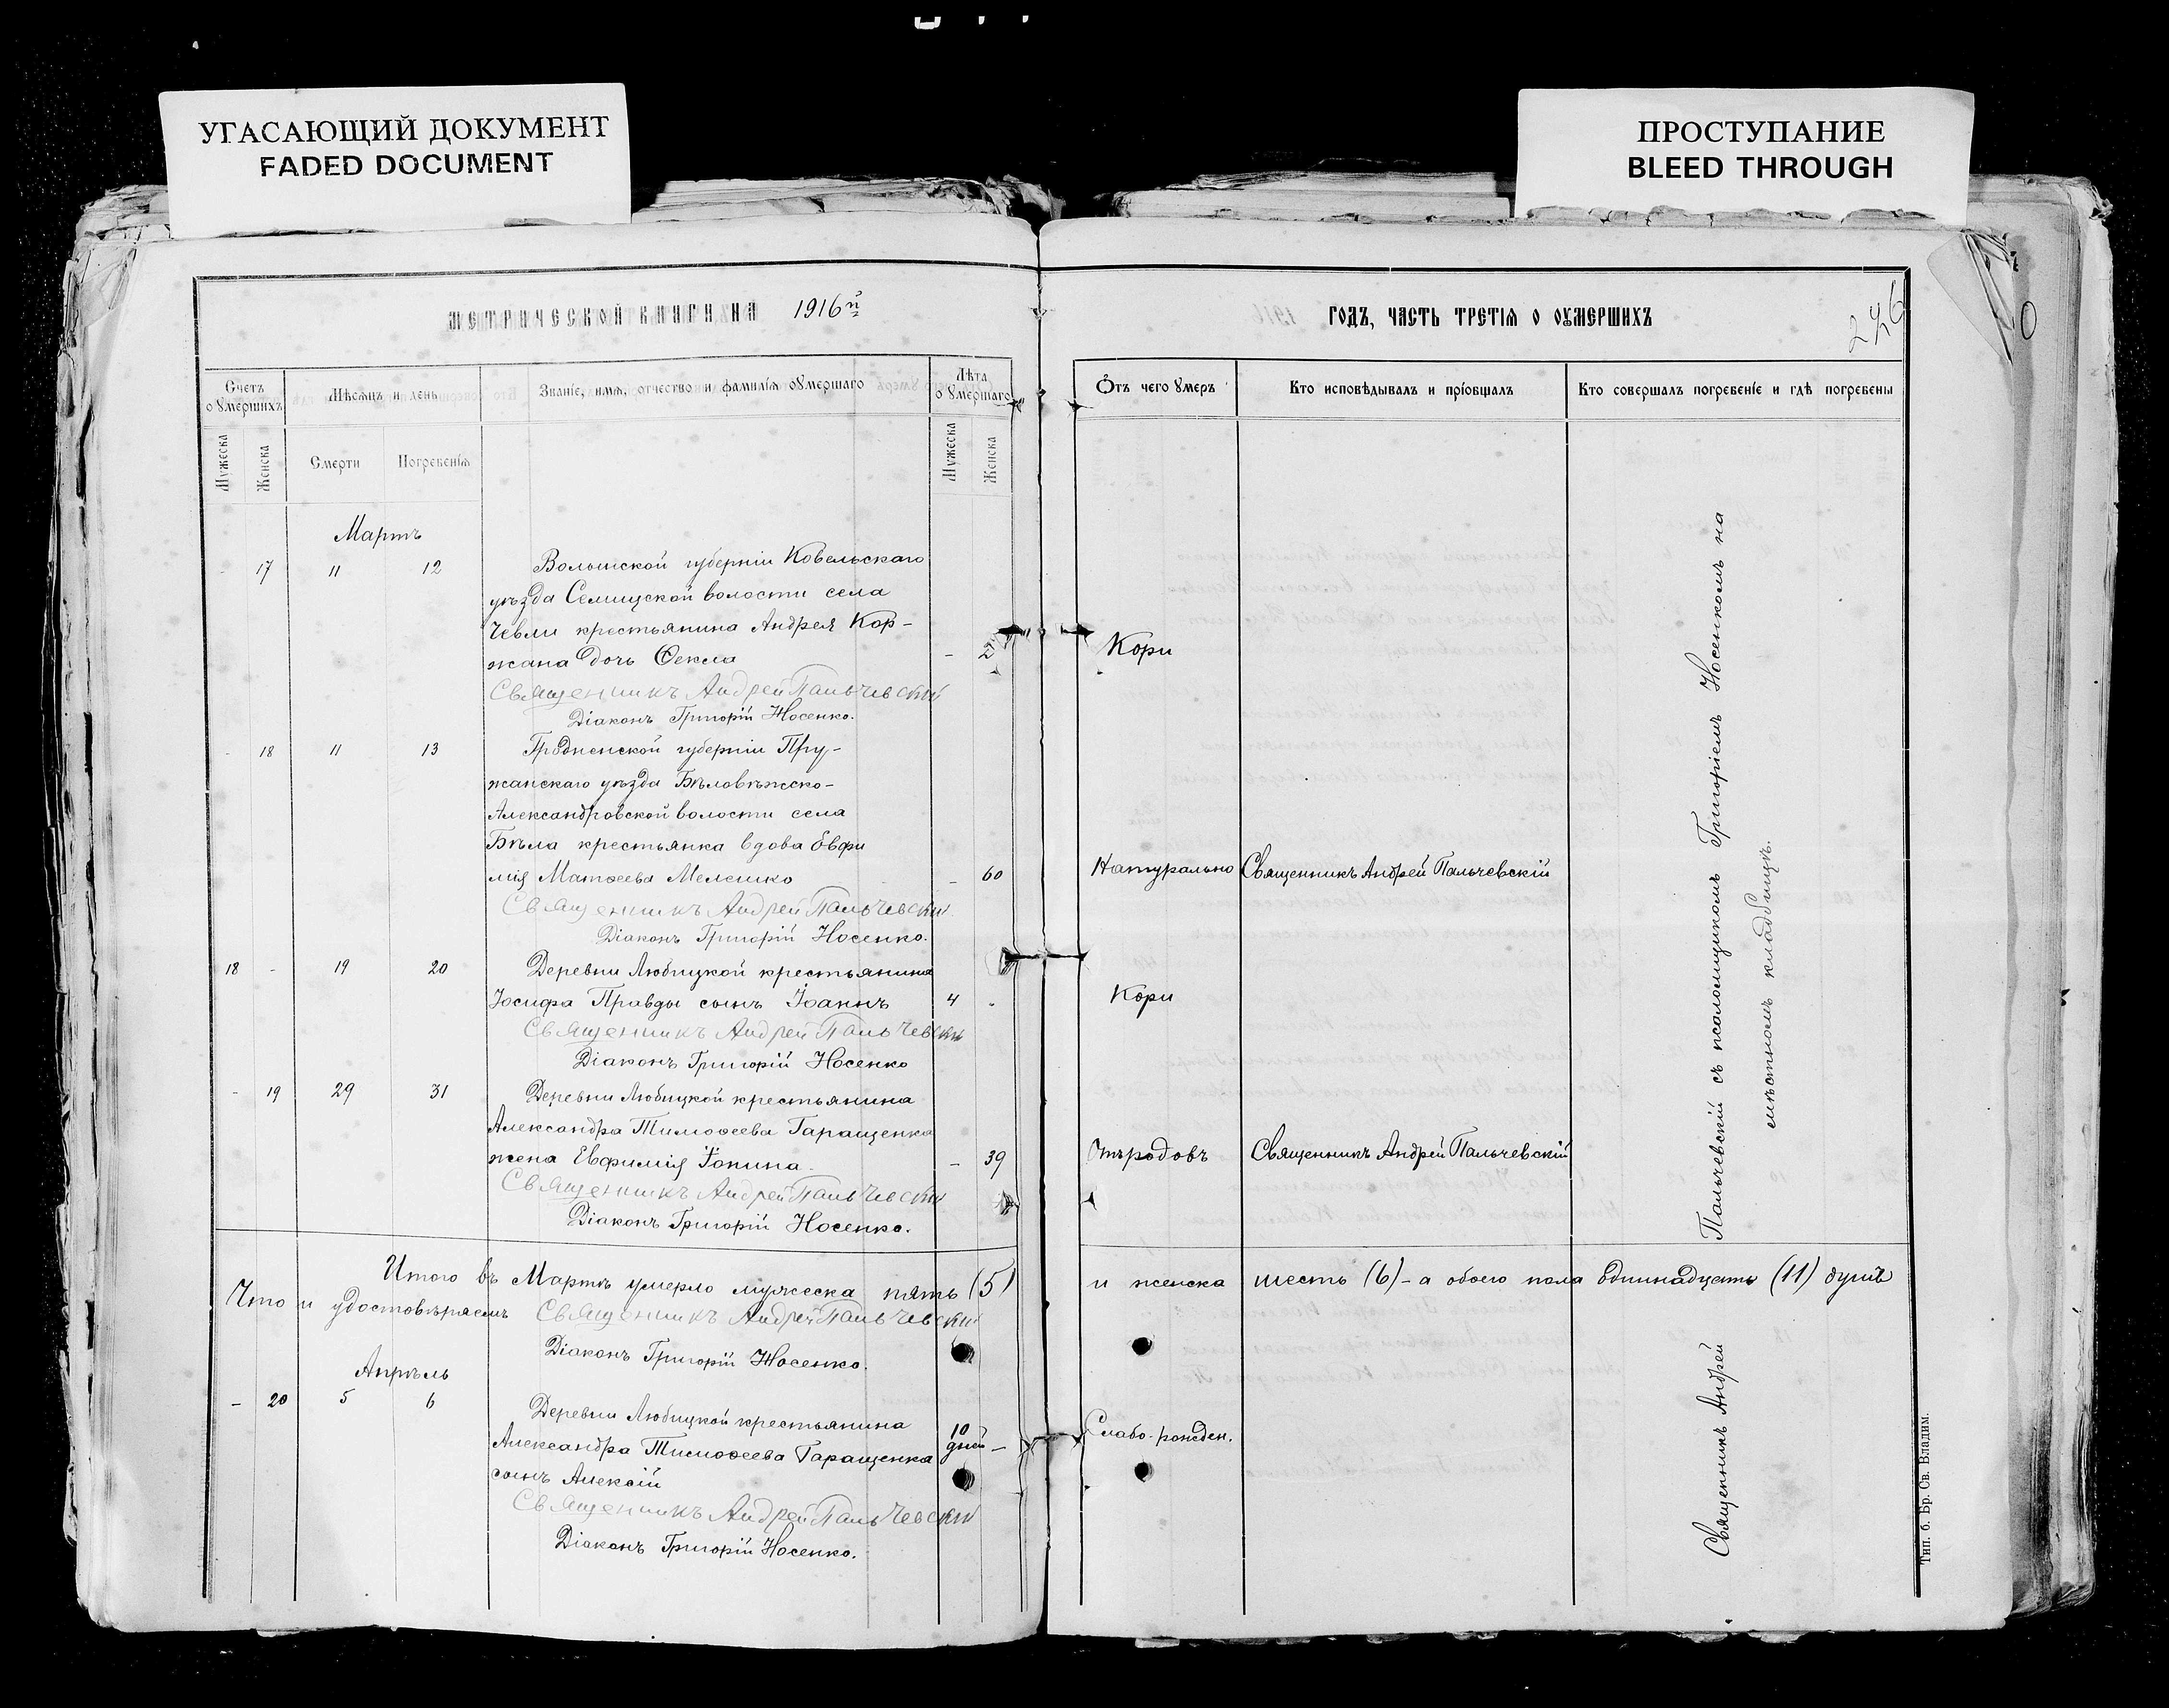 УГАСАЮЩИЙ ДОКУМЕНТ
FADED DOCUMENT
ПРОСТУПАНИЕ
BLEED THROUGH
МЕТРИЧЕСКОЙ КНИГИ НА 1916й
ГОДЪ, ЧАСТЬ ТРЕТІЯ О ОУМЕРШИХЪ
246
Счетъ оумершихъ
Мѣсяцъ и день
Званіе, имя, отчество и фамилія оумершаго
Лѣта оумершаго
Отъ чего умеръ
Кто исповѣдывалъ и пріобщалъ
Кто совершалъ погребеніе и гдѣ погребены
Мужеска
Женска
Смерти
Погребенія
Мужеска
Женска
Мартъ
- 17 11 12 Волынской губерніи Ковельскаго
уѣзда Селищской волости села
Чевли крестьянина Андрея Кор-
жана дочь Ѳекла - 2 Кори
Священникъ Андрей Пальчевскій
Діаконъ Григорій Носенко.
- 18 11 13 Гродненской губерніи Пру-
жанскаго уѣзда Бѣловѣжско-
Александровской волости села
Бѣла крестьянка вдова Евфи
мія Матѳеева Мелешко - 60 Натурально Священникъ Андрей Пальчевскій
Священникъ Андрей Пальчевскій
Діаконъ Григорій Носенко.
18 - 19 20 Деревни Любицкой крестьянина
Іосифа Правды сынъ Іоаннъ 4 - Кори
Священникъ Андрей Пальчевскій
Діаконъ Григорій Носенко
- 19 29 31 Деревни Любицкой крестьянина
Александра Тимоѳеева Гаращенка
жена Евфимія Іонина - 39 Отъ родовъ Священникъ Андрей Пальчевскій
Священникъ Андрей Пальчевскій
Діаконъ Григорій Носенко.
Итого въ Мартѣ умерло мужеска пять (5) и женска шесть (6) - а обоего пола одиннадцать (11) душъ
Что и удостовѣряемъ Священникъ Андрей Пальчевскій
Діаконъ Григорій Носенко.
Апрѣль
- 20 5 6 Деревни Любицкой крестьянина
Александра Тимоѳеева Гаращенка 10 дней - Слабо-рожден.
сынъ Алексій
Священникъ Андрей Пальчевскій
Діаконъ Григорій Носенко.
Священникъ Андрей
Пальчевскій съ псаломщикомъ Григоріемъ Носенкомъ на
мѣстномъ кладбищѣ.
Тип. б. Бр. Св. Владим.